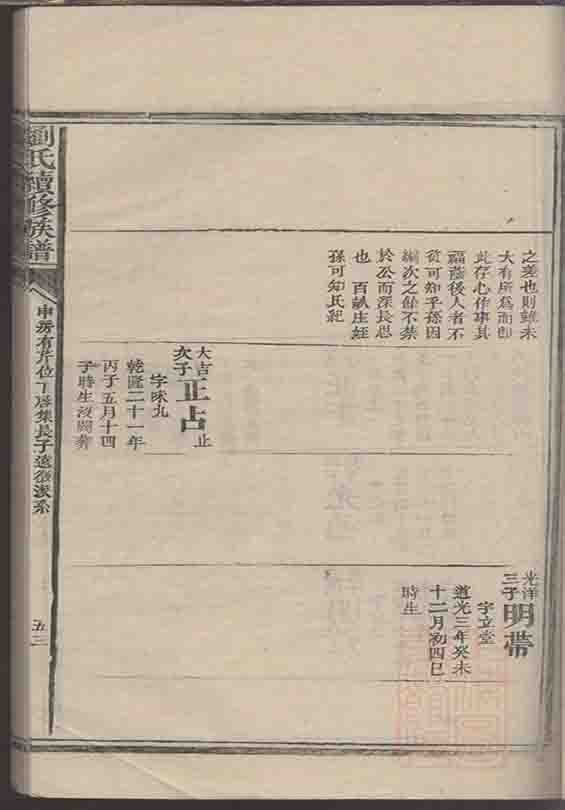 之差也則雖未
大有所為而即
此存心作事其
福蔭後人者不
從可知乎孫因
編次之餘不禁
於公而深長思
也 百畝庄經
孫可知氏紀
大吉
次子正占 止
字味九
乾隆二十一年
丙子五月十四
子時生沒闕葬
光洋
三子明帶
字立堂
道光三年癸未
十二月初四巳
時生
劉氏續修族譜
申房有芹位下启集長子遠
派系
五三